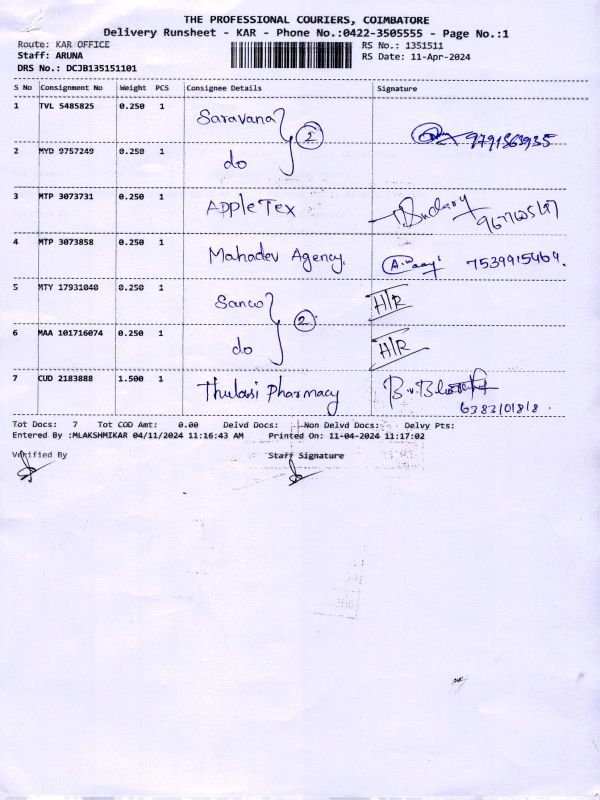 THE PROFESSIONAL COURIERS, COIMBATORE
Delivery Runsheet - KAR - Phone No.:0422-3505555 - Page No.:1
Route: KAR OFFICE RS No.: 1351511
Staff: ARUNA RS Date: 11-Apr-2024
DRS No.: DCJB135151101
S No Consignment No Weight PCS Consignee Details Signature
1 TVL 5485825 0.250 1 Saravana 2 9791363935
2 MYD 9757249 0.250 1 do
3 MTP 3073731 0.250 1 Apple Tex
4 MTP 3073858 0.250 1 Mahadev Agency. 7539915464.
5 MTY 17931040 0.250 1 Sanco 2 H/R
6 MAA 101716074 0.250 1 do H/R
7 CUD 2183888 1.500 1 Thulasi Pharmacy
Tot Docs: 7 Tot COD Amt: 0.00 Delvd Docs: Non Delvd Docs: Delvy Pts:
Entered By :MLAKSHMIKAR 04/11/2024 11:16:43 AM Printed On: 11-04-2024 11:17:02
Verified By Staff Signature